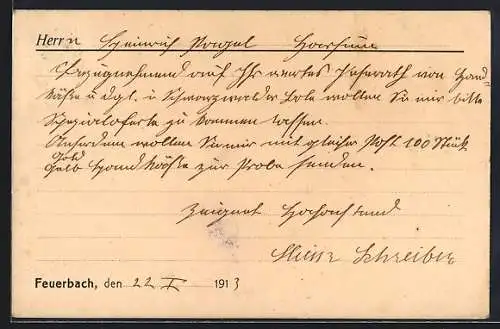 Herrn Heinrich Vogel
Bezugnehmend auf Ihr wertes Inserat von Hand-
käse u. dgl. i. Schwarzwälder Bote wollen Sie mir bitte
Spezialoferte zu kommen lassen.
Außerdem wollen Sie mir mit gleicher Post 100 Stück
Gold
Gelb Handkäse zur Probe senden.
Zeichnet Hochachtend
Schreiber
Feuerbach, den 22 I 1913